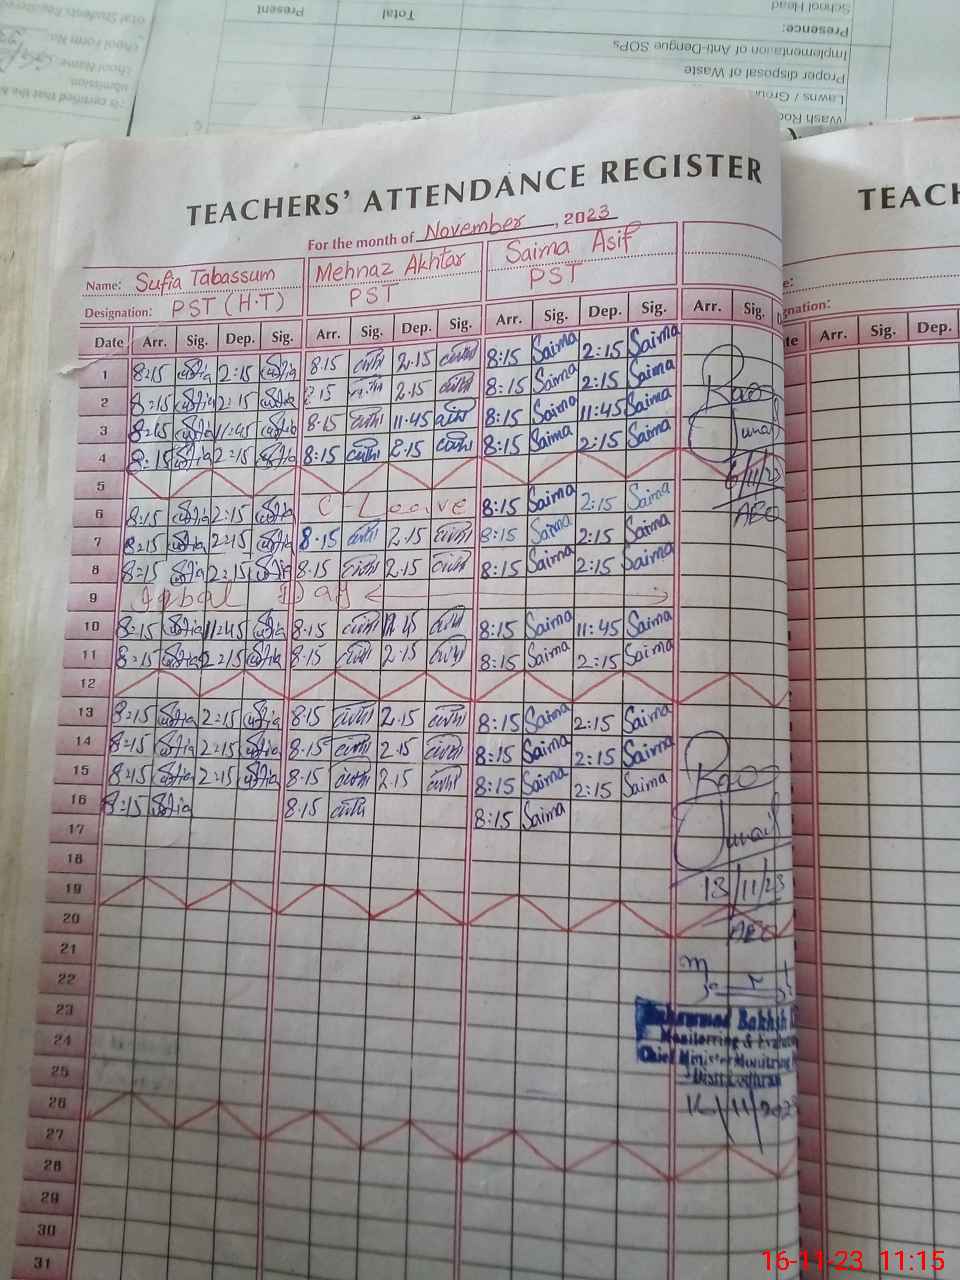 Total Students Registered
School Form No.
School Name:
submission.
School Head
Total
Present
Presence:
Implementation of Anti-Dengue SOPs
Proper disposal of Waste
Lawns /
TEACHERS' ATTENDANCE REGISTER
For the month of November, 2023
Name: Sufia Tabassum Mehnaz Akhtar Saima Asif
Designation: PST (H.T) PST PST
Date Arr. Sig. Dep. Sig. Arr. Sig. Dep. Sig. Arr. Sig. Dep. Sig. Arr. Sig.
1 8:15 2:15 8.15 2.15 8:15 Saima 2:15 Saima
2 8:15 2:15 8.15 2.15 8:15 Saima 2:15 Saima
3 8:15 11:45 8.15 11:45 8:15 Saima 11:45 Saima
4 8:15 2:15 8:15 2.15 8:15 Saima 2:15 Saima
5
6 8:15 2:15 C-Leave 8:15 Saima 2:15 Saima
7 8:15 2:15 8.15 2.15 8:15 Saima 2:15 Saima
8 8:15 2:15 8.15 2.15 8:15 Saima 2:15 Saima
9 Iqbal Day
10 8:15 11:45 8.15 11.45 8:15 Saima 11:45 Saima
11 8:15 2:15 8.15 2.15 8:15 Saima 2:15 Saima
12
13 8:15 2:15 8.15 2.15 8:15 Saima 2:15 Saima
14 8:15 2:15 8.15 2.15 8:15 Saima 2:15 Saima
15 8:15 2:15 8.15 2.15 8:15 Saima 2:15 Saima
16 8:15 8.15 8:15 Saima
17
18
19
20
21
22
23
24
25
26
27
28
29
30
31
Rao
Junaid
6/11/23
AEO
Rao
Junaid
13/11/23
AEO
Muhammad Bakhsh
Monitoring &
Chief Minister Monitoring
Distt. Lodhran
16/11/2023
TEACH
Arr. Sig. Dep.
16-11-23 11:15